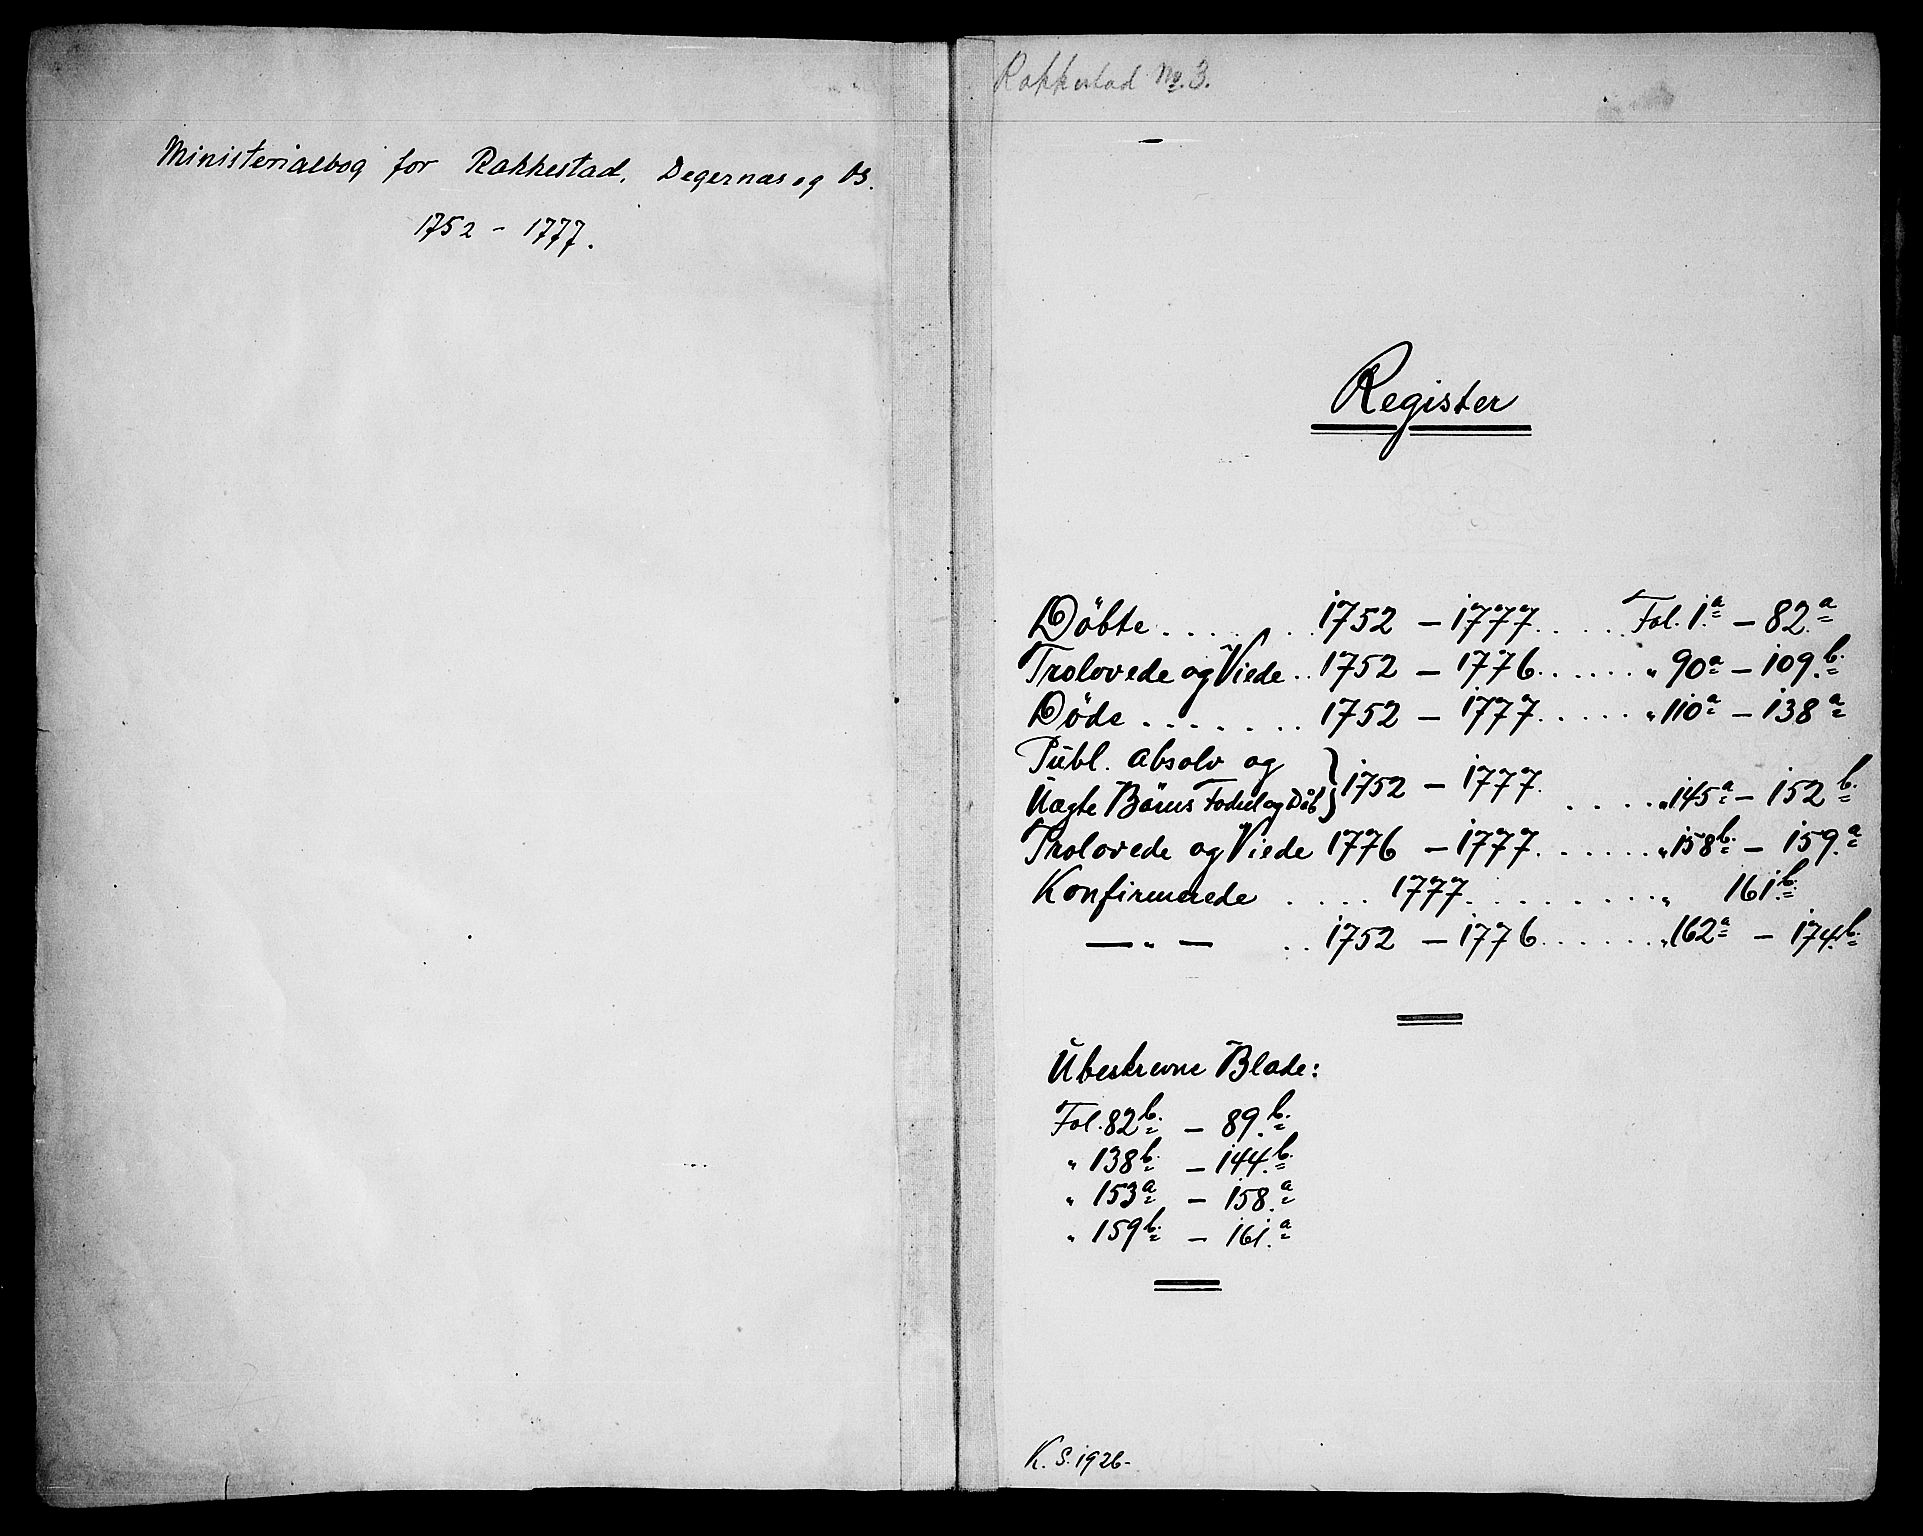 Ministerialbog for Rakkestad, Degernæs og Os.
1752 - 1777.
Rakkestad No. 3.
Register
Döbte . . . . . . 1752 - 1777. . . . . Fol. 1.a - 82.a
Trolovede og Viede . . 1752 - 1776. . . . . . " 90a - 109.b.
Döde . . . . . . . 1752 - 1777. . . . . " 110a - 138a
Publ. absolv og
Uægte Börns Födsel og Dåb } 1752 - 1777. . . . . " 145a - 152b.
Trolovede og Viede 1776 - 1777. . . . . . " 158b. - 159.a
Konfirmerede . . . . 1777. . . . . . . . . " 161b.
— " — . . 1752 - 1776. . . . . . " 162a - 174.b.
Ubeskrevne Blade:
Fol. 82b. - 89.b.
" 138b. - 144.b.
" 153a - 158.a
" 159b. - 161.a
K. S. 1926.